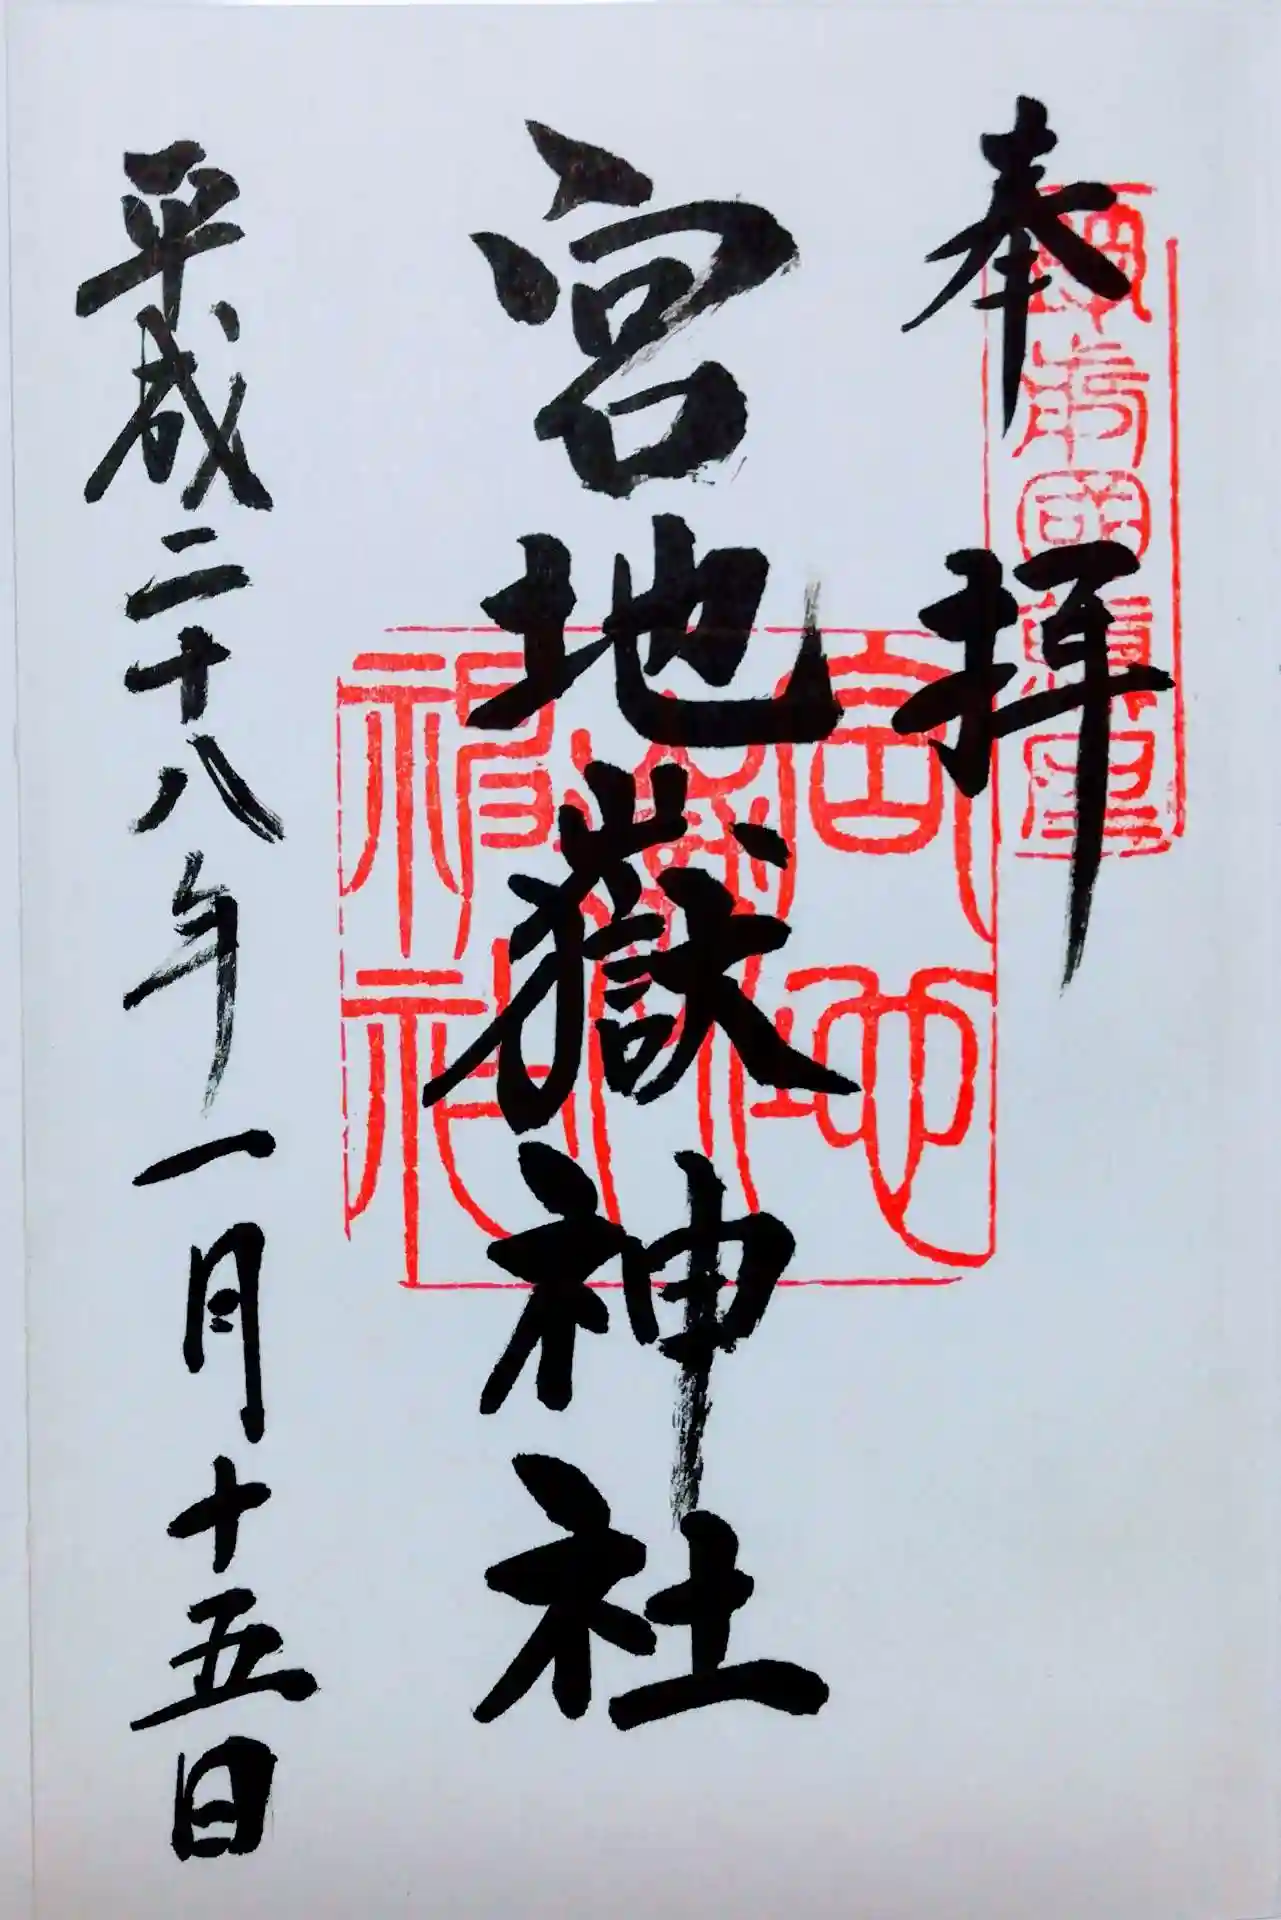 奉拝
宮地嶽神社
平成二十八年一月十五日
宮地
嶽
神社